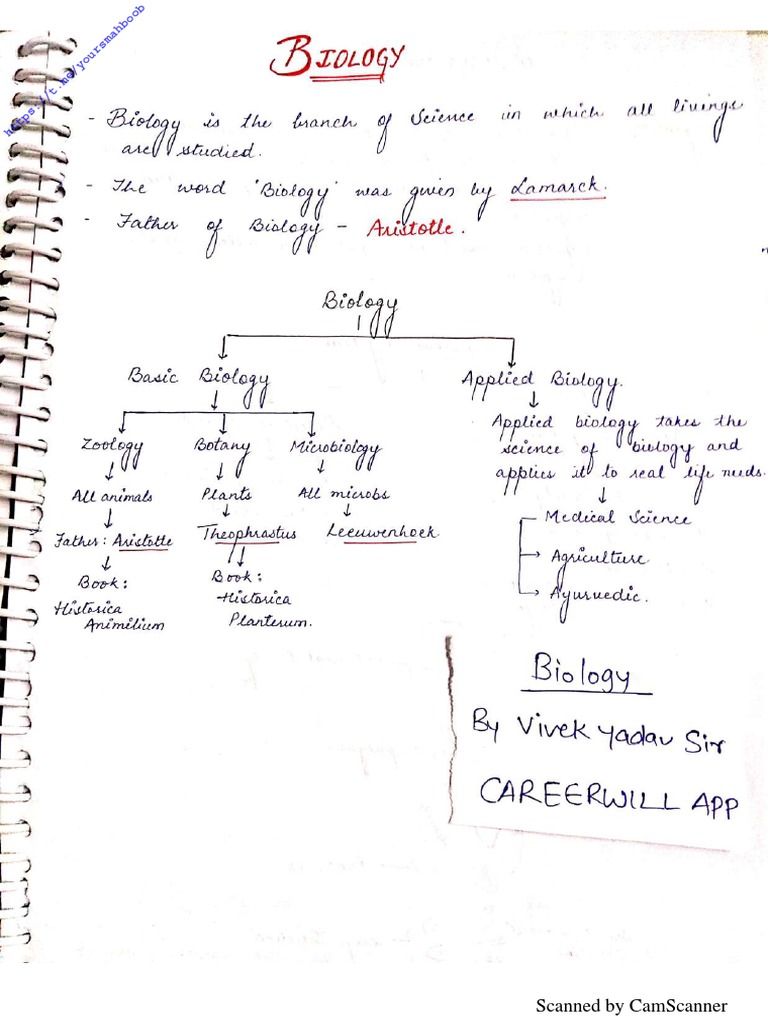 https://t.me/yoursmahboob
BIOLOGY
- Biology is the branch of Science in which all livings
are studied.
- The word 'Biology' was given by Lamarck.
- Father of Biology - Aristotle.
Biology
Basic Biology
Applied Biology.
Zoology Botany Microbiology
All animals Plants All microbs
Father: Aristotle Theophrastus Leeuwenhoek
Book: Book:
Historica Historica
Animilium Planterum.
Applied biology takes the
science of biology and
applies it to real life needs.
Medical Science
Agriculture
Ayurvedic.
Biology
By Vivek Yadav Sir
CAREERWILL APP
Scanned by CamScanner